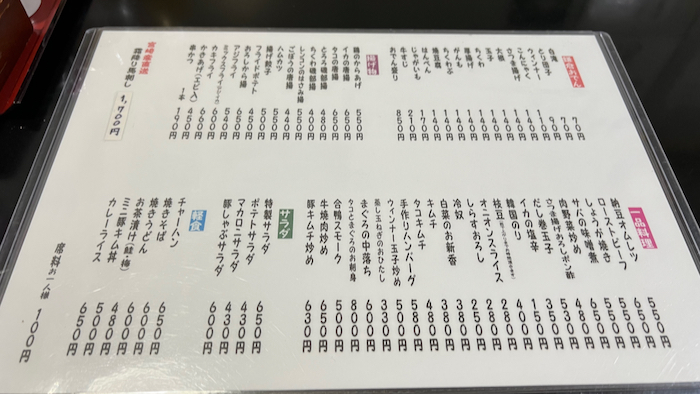 白滝 70円
とり団子 70円
ウィンナー 90円
こんにゃく 110円
さつま揚げ 110円
大根
玉子
ちくわ
厚揚げ 140円
がんも 140円
ちくわぶ 140円
焼豆腐 140円
はんぺん 140円
じゃがいも 170円
牛すじ 210円
おでん盛り 850円
揚げ物
鶏のからあげ 550円
イカの唐揚 650円
タコの唐揚 650円
とろろ磯部揚 480円
ちくわ磯部揚 440円
レンコンのはさみ揚 550円
ごぼうの唐揚 440円
ハムカツ 400円
揚げ餃子 500円
フライドポテト 450円
おろしから揚 650円
アジフライ 540円
ミックスフライ
カキフライ 600円
かきあげ(エビ入) 660円
串かつ 450円
1本 190円
宮崎産直送
霜降り馬刺し 1,700円
一品料理
納豆オムレツ 550円
ローストビーフ 550円
しょうが焼き 650円
サバの味噌煮 650円
肉野菜炒め 480円
おろしポン酢 530円
だし巻玉子 350円
イカの塩辛
韓国のり 150円
枝豆 400円
オニオンスライス 280円
しらすおろし 280円
冷奴 250円
白菜のお新香 380円
キムチ 380円
タコキムチ 480円
手作りハンバーグ 580円
ウィンナー玉子炒め 500円
蒸し玉ねぎのおひたし 330円
まぐろの中落ち 600円
タコとまぐろのお刺身 800円
合鴨スモーク 500円
牛焼肉炒め 650円
豚キムチ炒め 630円
サラダ
特製サラダ 650円
ポテトサラダ 430円
マカロニサラダ 430円
豚しゃぶサラダ 600円
軽食
チャーハン 650円
焼きそば 600円
焼きうどん 600円
お茶漬け(鮭・梅) 480円
ミニ豚キムチ丼 500円
カレーライス 650円
席料お一人様 100円